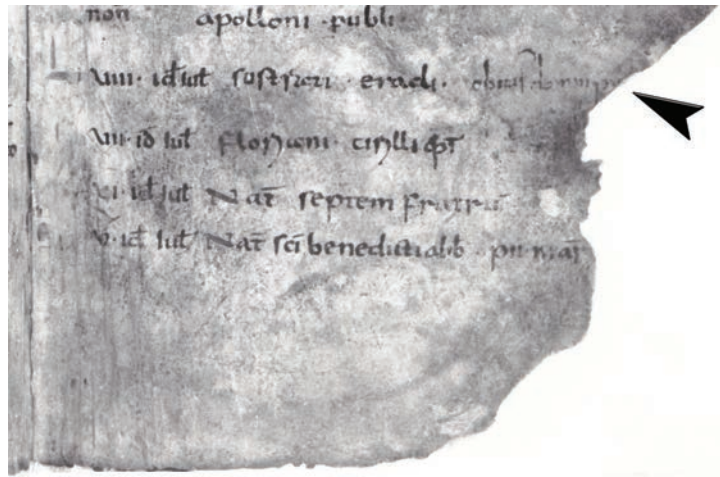 non apolloni · publi
viiii · id iul sostrati · eracli · obiit
viii · id iul floriani · cirilli ep̄i
vi · id iul Nat̄ septem fratrū
v · id iul Nat̄ sc̄i benedicti ab̄b · pii · mar̄